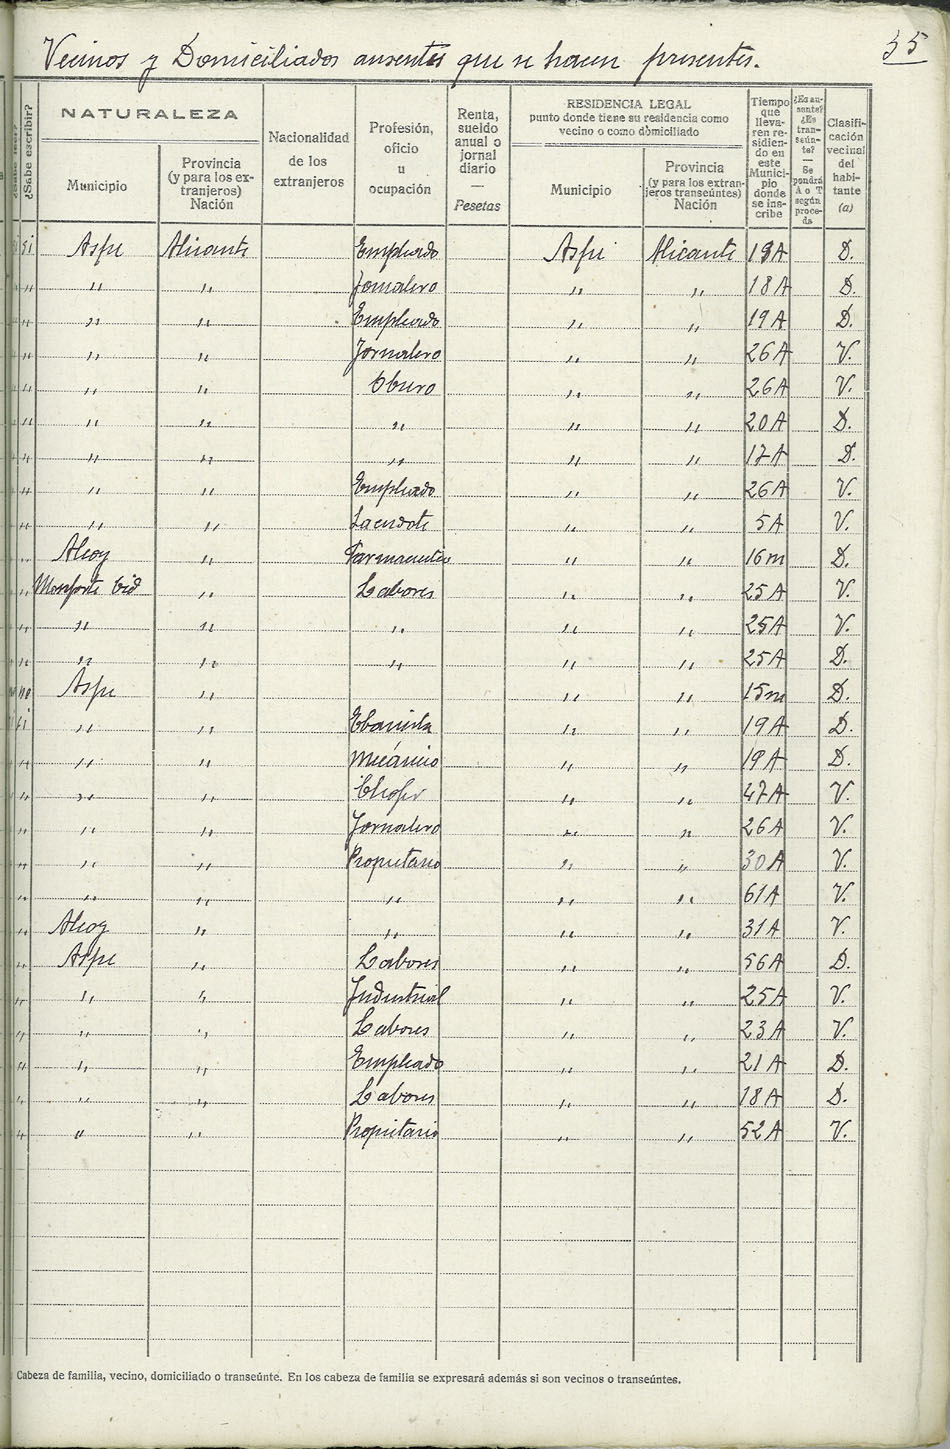 Vecinos y Domiciliados ausentes que se hacen presentes.
35
¿Sabe leer?
¿Sabe escribir?
NATURALEZA
Municipio
Provincia (y para los extranjeros) Nación
Nacionalidad de los extranjeros
Profesión, oficio u ocupación
Renta, sueldo anual o jornal diario — Pesetas
RESIDENCIA LEGAL
punto donde tiene su residencia como vecino o como domiciliado
Municipio
Provincia (y para los extranjeros transeúntes) Nación
Tiempo que llevaren residiendo en este Municipio donde se inscribe
¿Es ausente? ¿Es transeúnte? — Se pondrá A o T según proceda
Clasificación vecinal del habitante (a)
si Aspe Alicante Empleado Aspe Alicante 19A D.
" " " Jornalero " " 18A D.
" " " Empleado " " 19A D.
" " " Jornalero " " 26A V.
" " " Obrero " " 26A V.
" " " " " " 20A D.
" " " " " " 17A D.
" " " Empleado " " 26A V.
" " " Sacerdote " " 5A V.
" Alcoy " Farmaceutico " " 16m D.
" Monforte Cid " Labores " " 25A V.
" " " " " " 25A V.
" " " " " " 25A D.
no Aspe " " " 15m D.
si " " Ebanista " " 19A D.
" " " Mecánico " " 19A D.
" " " Chofer " " 47A V.
" " " Jornalero " " 26A V.
" " " Propietario " " 30A V.
" " " " " " 61A V.
" Alcoy " " " " 31A V.
" Aspe " Labores " " 56A D.
" " " Industrial " " 25A V.
" " " Labores " " 23A V.
" " " Empleado " " 21A D.
" " " Labores " " 18A D.
" " " Propietario " " 52A V.
Cabeza de familia, vecino, domiciliado o transeúnte. En los cabeza de familia se expresará además si son vecinos o transeúntes.